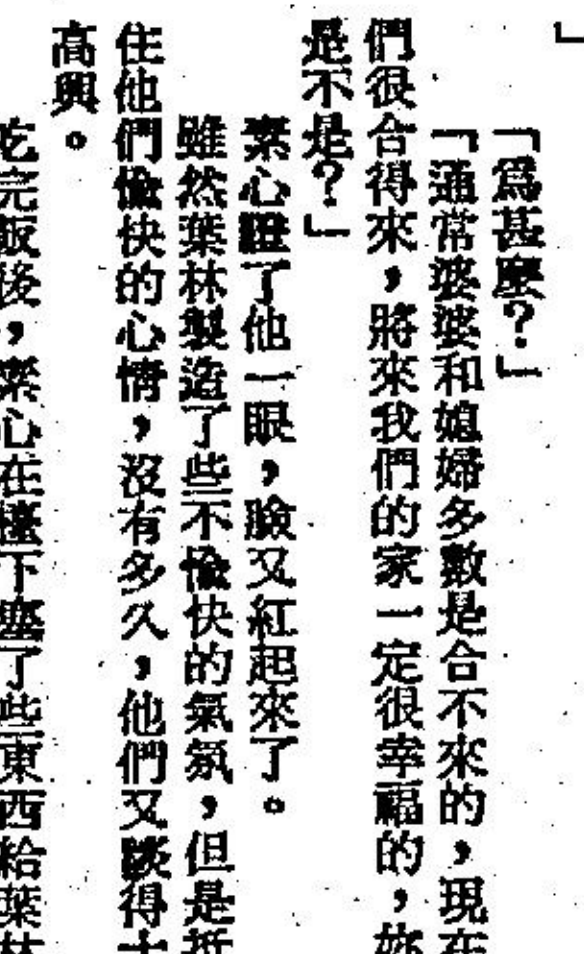 」
「爲甚麼？」
「通常婆婆和媳婦多數是合不來的，現在
們很合得來，將來我們的家一定很幸福的，妳
是不是？」
素心瞪了他一眼，臉又紅起來了。
雖然葉林製造了些不愉快的氣氛，但是抵
住他們愉快的心情，沒有多久，他們又談得十
高興。
吃完飯後，素心在檯下塞了些東西給葉林